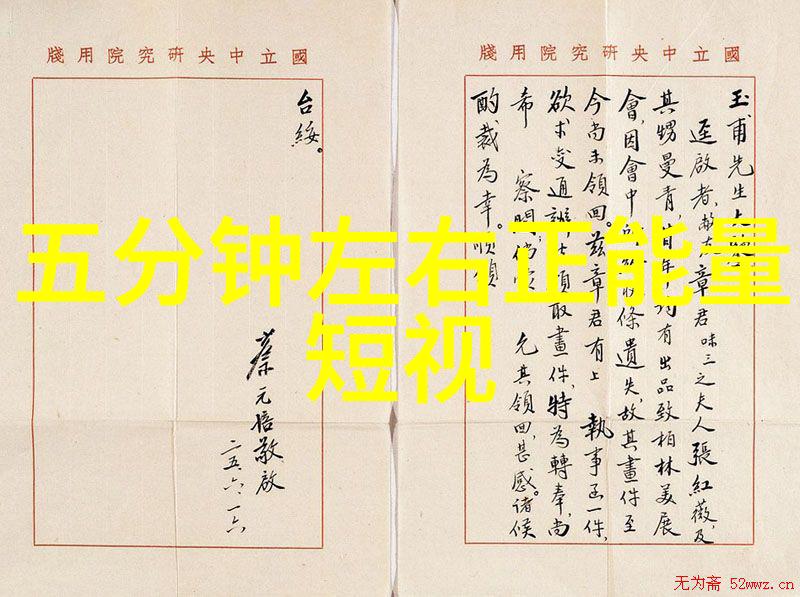 五分钟左右正能量
短视
國立中央研究院用牋
玉甫先生大
逕啟者,敝友章君味三之夫人張紅薇,及
其甥曼青,前年均有出品致柏林美展
會,因會中收條遺失,故其畫件至
今尚未領回。茲章君有上 執事函一件,
欲求變通辦法領取畫件,特為轉奉,尚
希 察閱,倘 允其領回,甚感。諸候
酌裁為幸。順頌
國立中央研究院用牋
台綏。
蔡元培敬啟
二五、六、一六
无为斋 52wwz.cn